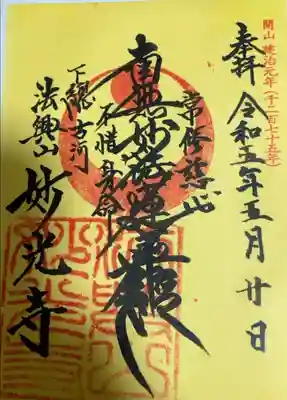 開山 建治元年(千二百七十五年)
奉拝 令和五年五月廿日
南無妙法蓮華経
不惜身命
下総古河
法興山 妙光寺